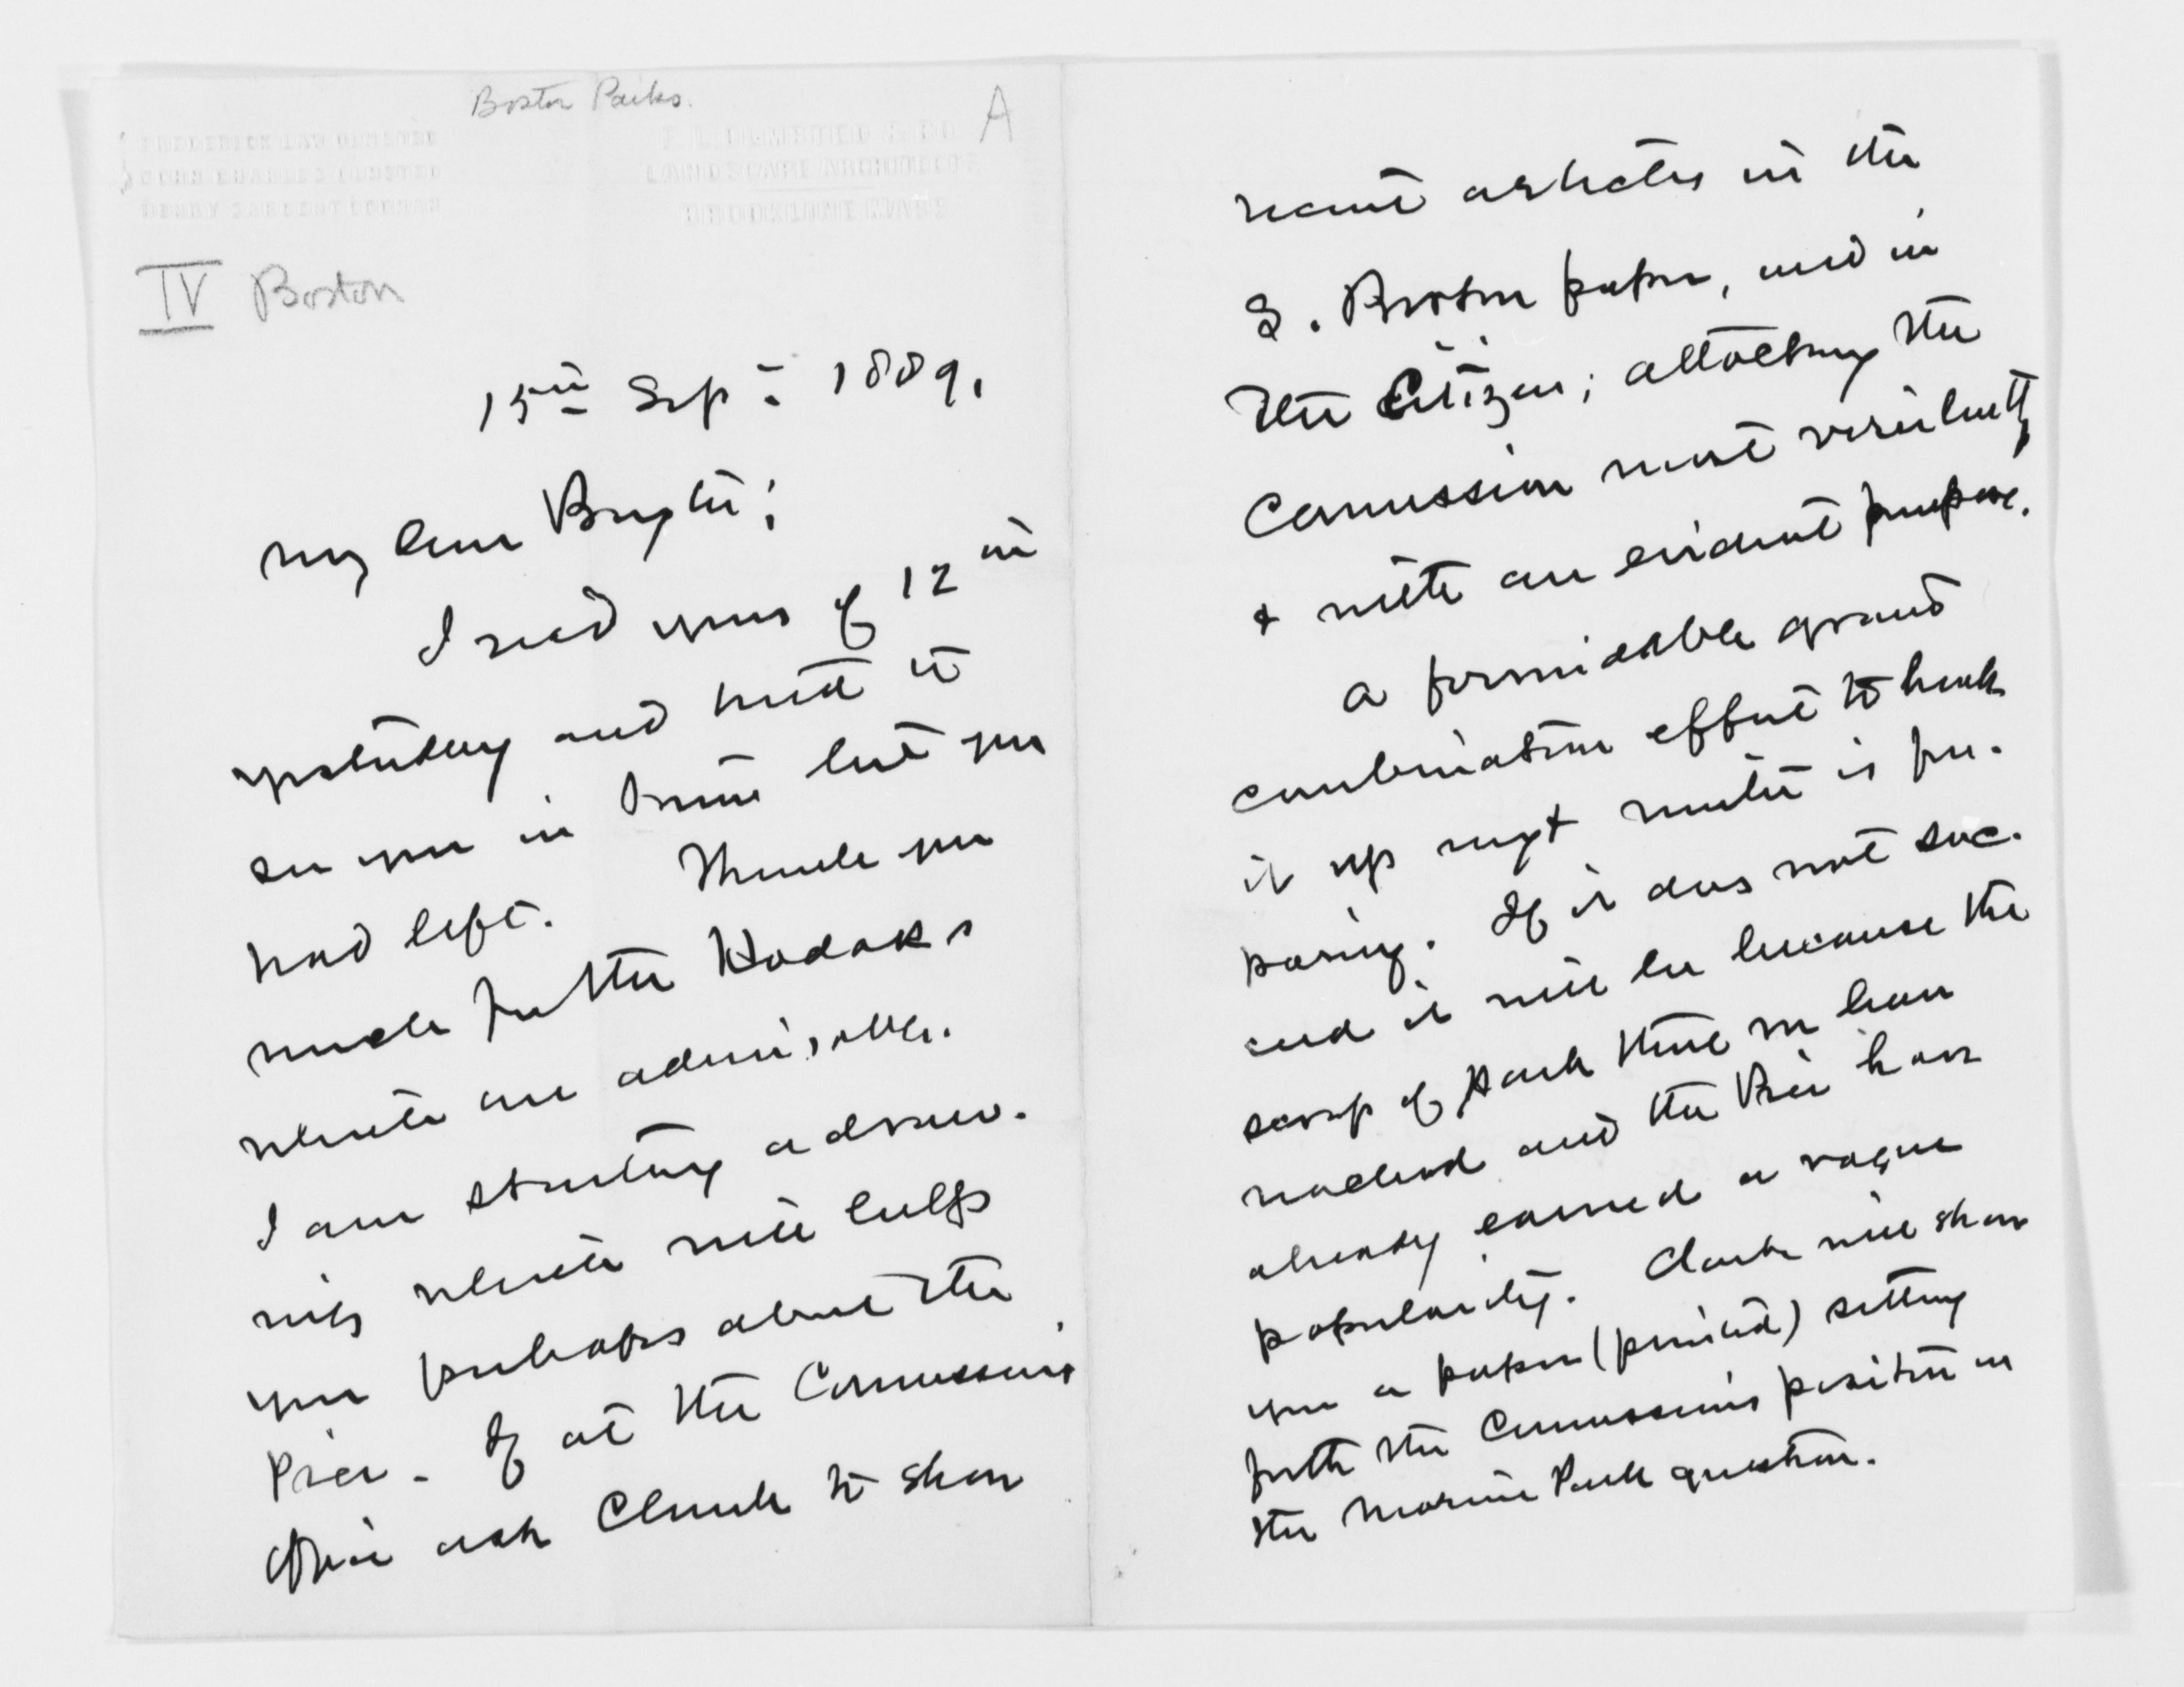 Boston Parks.
A
FREDERICK LAW OLMSTED
JOHN CHARLES OLMSTED
HENRY SARGENT CODMAN
F. L. OLMSTED & CO
LANDSCAPE ARCHITECTS
BROOKLINE MASS
IV Boston
15th Sept. 1889.
My dear
I recd yours of 12th
yesterday and tried to
see you in but you
had left. Thank you
much for the Kodaks
which are admirable.
I am starting a draw-
ing which will help
you perhaps about the
Pier. If at the Commission's
office ask Clarke to show
recent articles in the
S. Boston paper, and in
the Citizen; attacking the
Commission most virulently
& with an evident purpose.
a formidable grand
combination effort to break
it up next winter is pre-
paring. If it does not suc-
ceed it will be because the
scrap of park that we have
realized and the Pier have
already earned a vague
popularity. Clarke will show
you a paper (printed) setting
forth the Commission's position in
the Marine Park question.